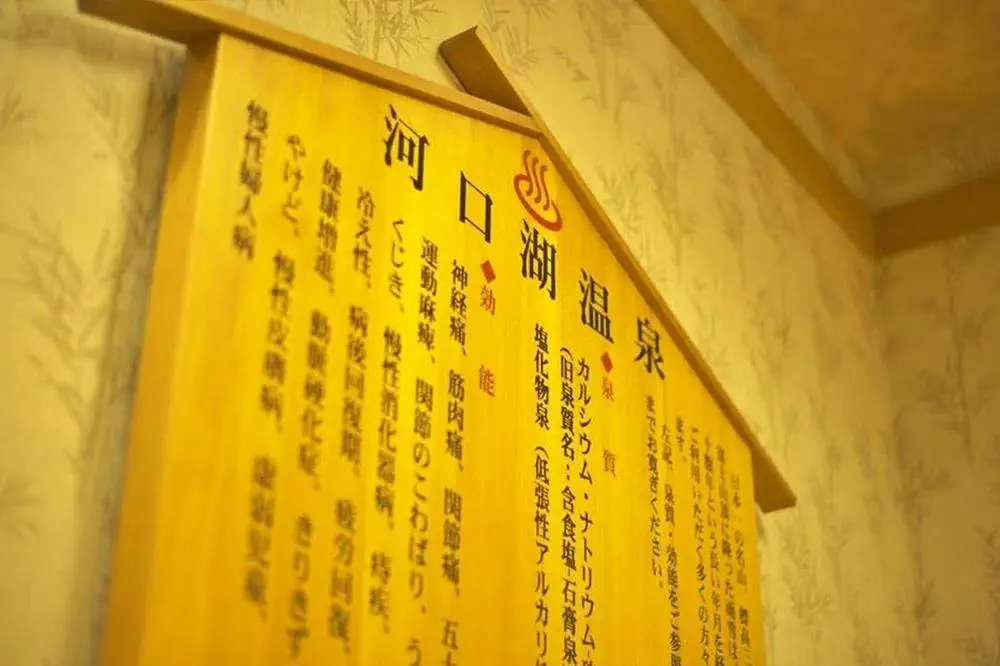 河口湖温泉
日本一の名山 標高三
富士山頂に降った雨雪は、
十数年という長い年月を経
ご利用いただく多くの方々
ます。
左記、泉質・効能をご参照
までお寛ぎください。
◆泉質
カルシウム・ナトリウム
(旧泉質名:含食塩-石膏泉
塩化物泉 (低張性アルカリ
◆効能
神経痛、筋肉痛、関節痛、五十
運動麻痺、関節のこわばり、う
くじき、慢性消化器病、痔疾、
冷え性、病後回復期、疲労回復、
健康増進、動脈硬化症、きりきず
やけど、慢性皮膚病、虚弱児童、
慢性婦人病